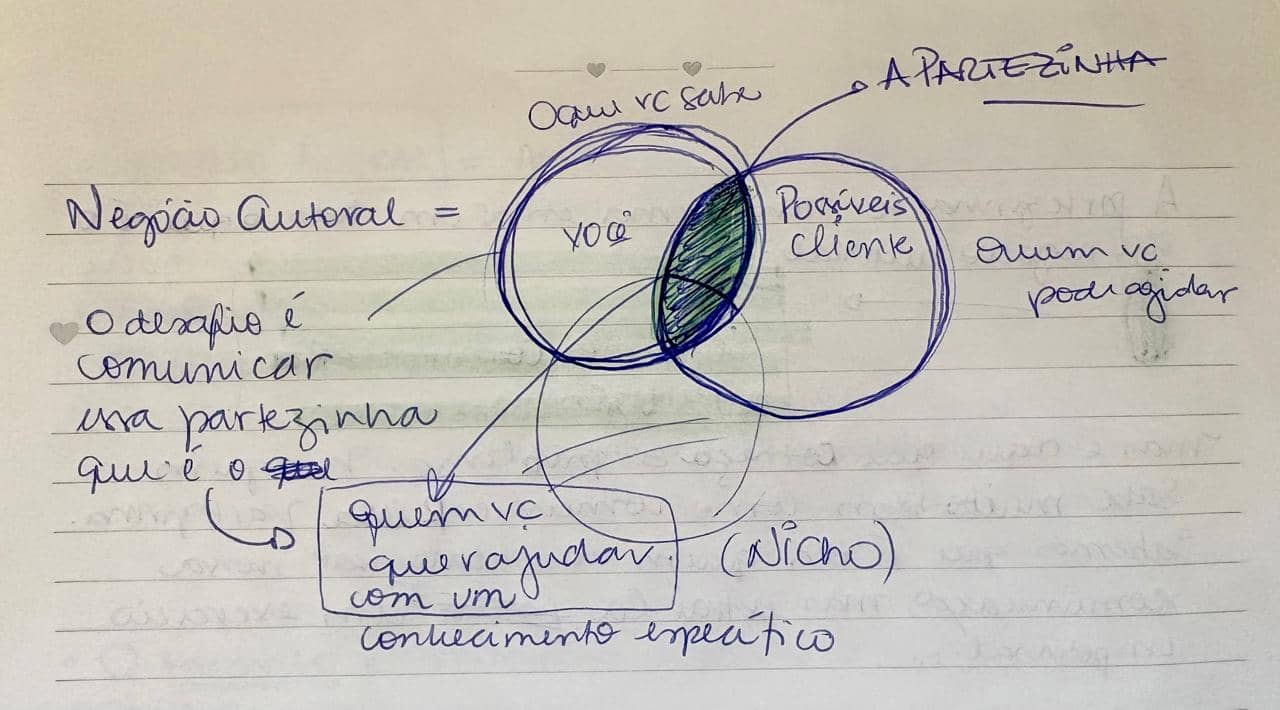 A PARTEZINHA
O que vc sabe
Negócio autoral =
você
Possíveis
cliente
Quem vc
pode ajudar
O desafio é
comunicar
essa partezinha
que é o
quem vc
quer ajudar
com um
conhecimento específico
(Nicho)